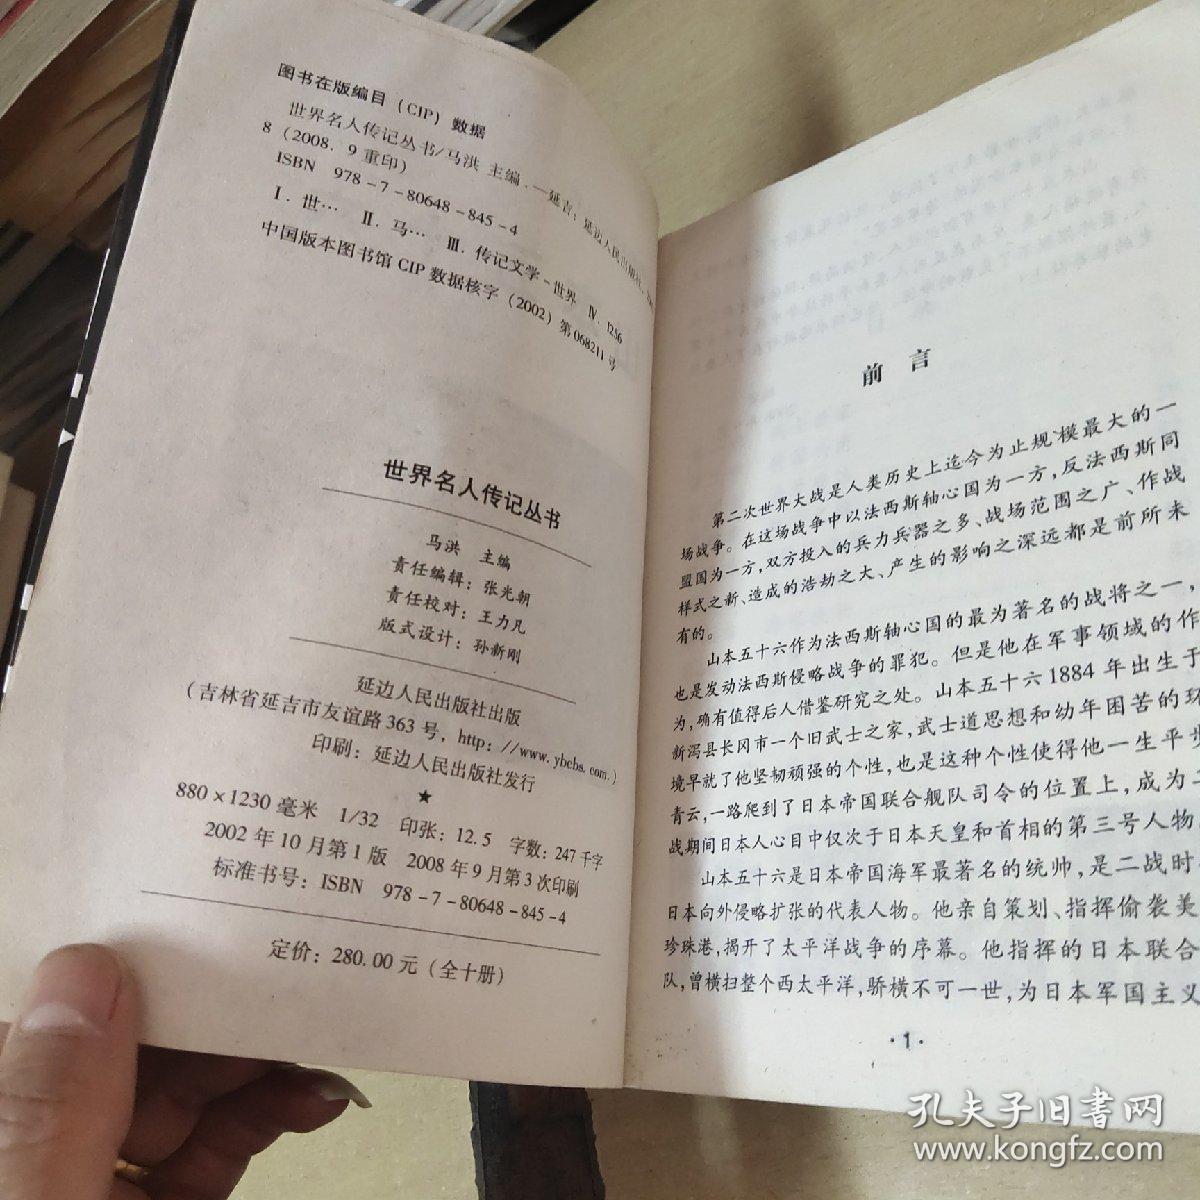 图书在版编目(CIP)数据
世界名人传记丛书/马洪 主编.—延吉:延边人民出版社,
8(2008.9重印)
ISBN 978-7-80648-845-4
Ⅰ.世… Ⅱ.马… Ⅲ.传记文学-世界 Ⅳ.1256
中国版本图书馆CIP数据核字(2002)第068211号
世界名人传记丛书
马洪 主编
责任编辑:张光朝
责任校对:王力凡
版式设计:孙新刚
延边人民出版社出版
(吉林省延吉市友谊路363号,http://www.ybcbs.com.)
印刷:延边人民出版社发行
★
880×1230毫米 1/32 印张:12.5 字数:247千字
2002年10月第1版 2008年9月第3次印刷
标准书号:ISBN 978-7-80648-845-4
定价:280.00元(全十册)
前言
第二次世界大战是人类历史上迄今为止规模最大的一
场战争。在这场战争中以法西斯轴心国为一方,反法西斯同
盟国为一方,双方投入的兵力兵器之多、战场范围之广、作战
样式之新、造成的浩劫之大、产生的影响之深远都是前所未
有的。
山本五十六作为法西斯轴心国的最为著名的战将之一,
也是发动法西斯侵略战争的罪犯。但是他在军事领域的作
为,确有值得后人借鉴研究之处。山本五十六1884年出生于
新泻县长冈市一个旧武士之家,武士道思想和幼年困苦的环
境早就了他坚韧顽强的个性,也是这种个性使得他一生平步
青云,一路爬到了日本帝国联合舰队司令的位置上,成为二
战期间日本人心目中仅次于日本天皇和首相的第三号人物。
山本五十六是日本帝国海军最著名的统帅,是二战时
日本向外侵略扩张的代表人物。他亲自策划、指挥偷袭美
珍珠港,揭开了太平洋战争的序幕。他指挥的日本联合
队,曾横扫整个西太平洋,骄横不可一世,为日本军国主义
·1·
孔夫子旧书网
www.kongfz.com